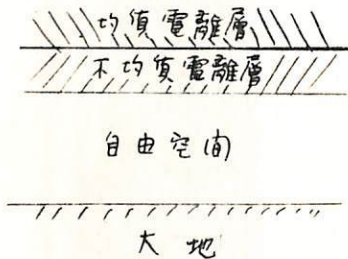 均質電離層
不均質電離層
自由空间
大地